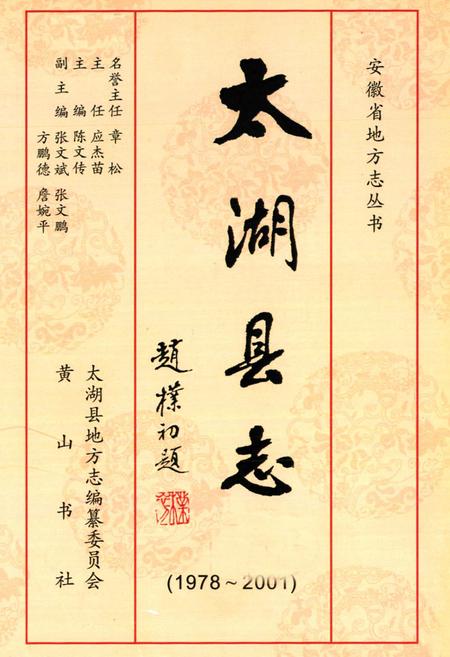 安徽省地方志丛书
太湖县志
趙樸初题
(1978～2001)
名誉主任 章松
主任 应杰苗
主编 陈文传
副主编 张文斌 张文鹏
方鹏德 詹婉平
太湖县地方志编纂委员会
黄山书社